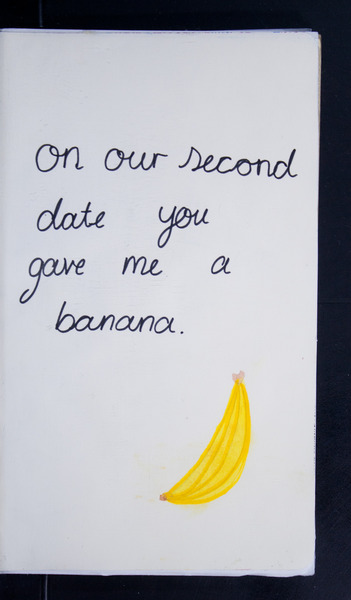 on our second
date you
gave me a
banana.